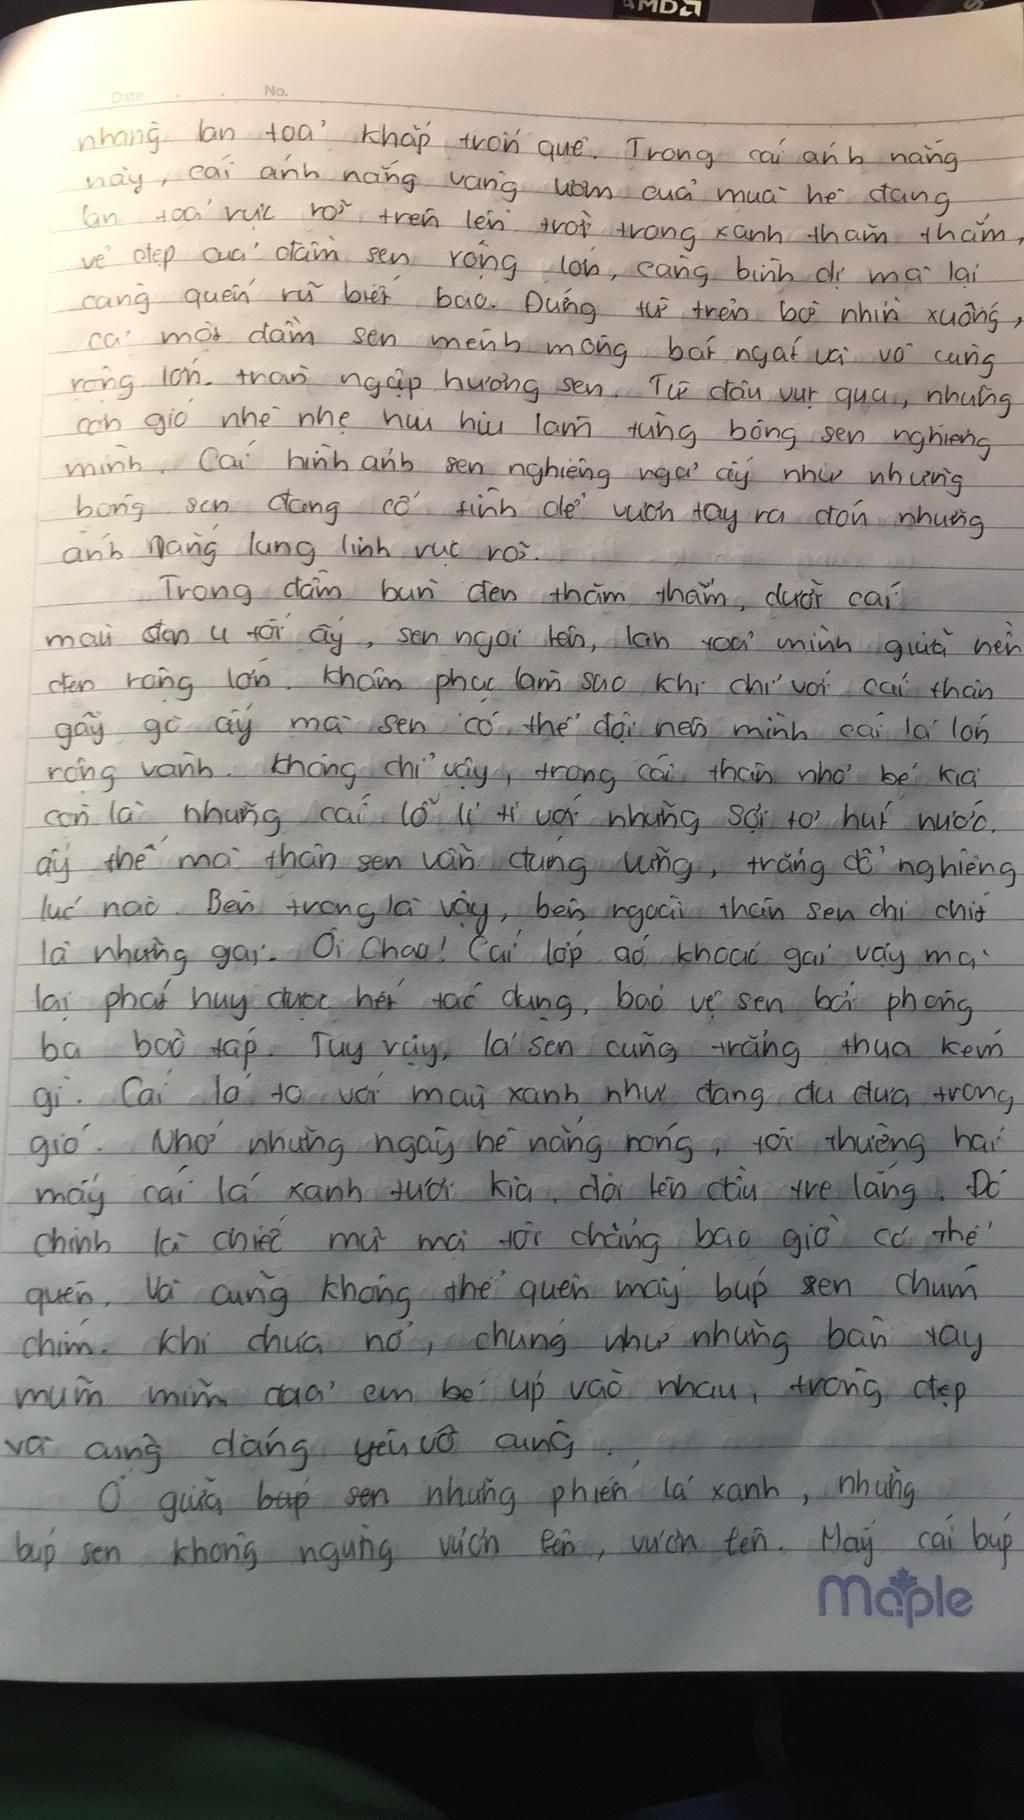 AMD
Date . . No.
nhàng lan toả khắp trốn quê. Trong cái ánh nắng
này, cái ánh nắng vàng ươm của mùa hè đang
lan toả rực rỡ trên lền trời trong xanh thăm thẳm,
vẻ đẹp của đầm sen rộng lớn, càng bình dị mà lại
càng quến rũ biết bao. Đứng từ trên bờ nhìn xuống,
cả một đầm sen mênh mông bát ngát và vô cùng
rộng lớn. tràn ngập hương sen. Từ đâu vụt qua, những
cơn gió nhè nhẹ hiu hiu làm từng bông sen nghiêng
mình. Cái hình ảnh sen nghiêng ngả ấy như những
bông sen đang cố tình để vươn tay ra đón những
ánh nắng lung linh rực rỡ.
Trong đầm bùn đen thăm thẳm, dưới cái
màu đen u tối ấy, sen ngoi lên, lan toả mình giữa nền
đen rộng lớn. Khâm phục làm sao khi chỉ với cái thân
gầy gò ấy mà sen có thể đội nên mình cái lá lớn
rộng vành. Không chỉ vậy, trong cái thân nhỏ bé kia
còn là những cái lỗ li ti với những sợi tơ hút nước.
ấy thế mà thân sen vẫn đứng vững, trẳng đổ nghiêng
lúc nào. Bên trong là vậy, bên ngoài thân sen chi chít
là những gai. Ôi Chao! Cái lớp áo khoác gai vậy mà
lại phát huy được hết tác dụng, bảo vệ sen bởi phong
ba bão táp. Tuy vậy, lá sen cũng trẳng thua kém
gì. Cái lá to với màu xanh như đang đu đưa trong
gió. Nhớ những ngày hè nắng nóng, tôi thường hái
mấy cái lá xanh tươi kia, đội lên đầu tre lắng. Đó
chính là chiếc mũ mà tôi chẳng bao giờ có thể
quên. Và cũng không thể quên mấy búp sen chúm
chím. Khi chưa nở, chúng như những bàn tay
mũm mĩm của em bé úp vào nhau, trông đẹp
và cũng đáng yêu vô cùng.
Ở giữa búp sen những phiến lá xanh, những
búp sen không ngừng vươn lên, vươn lên. Mấy cái búp
Maple